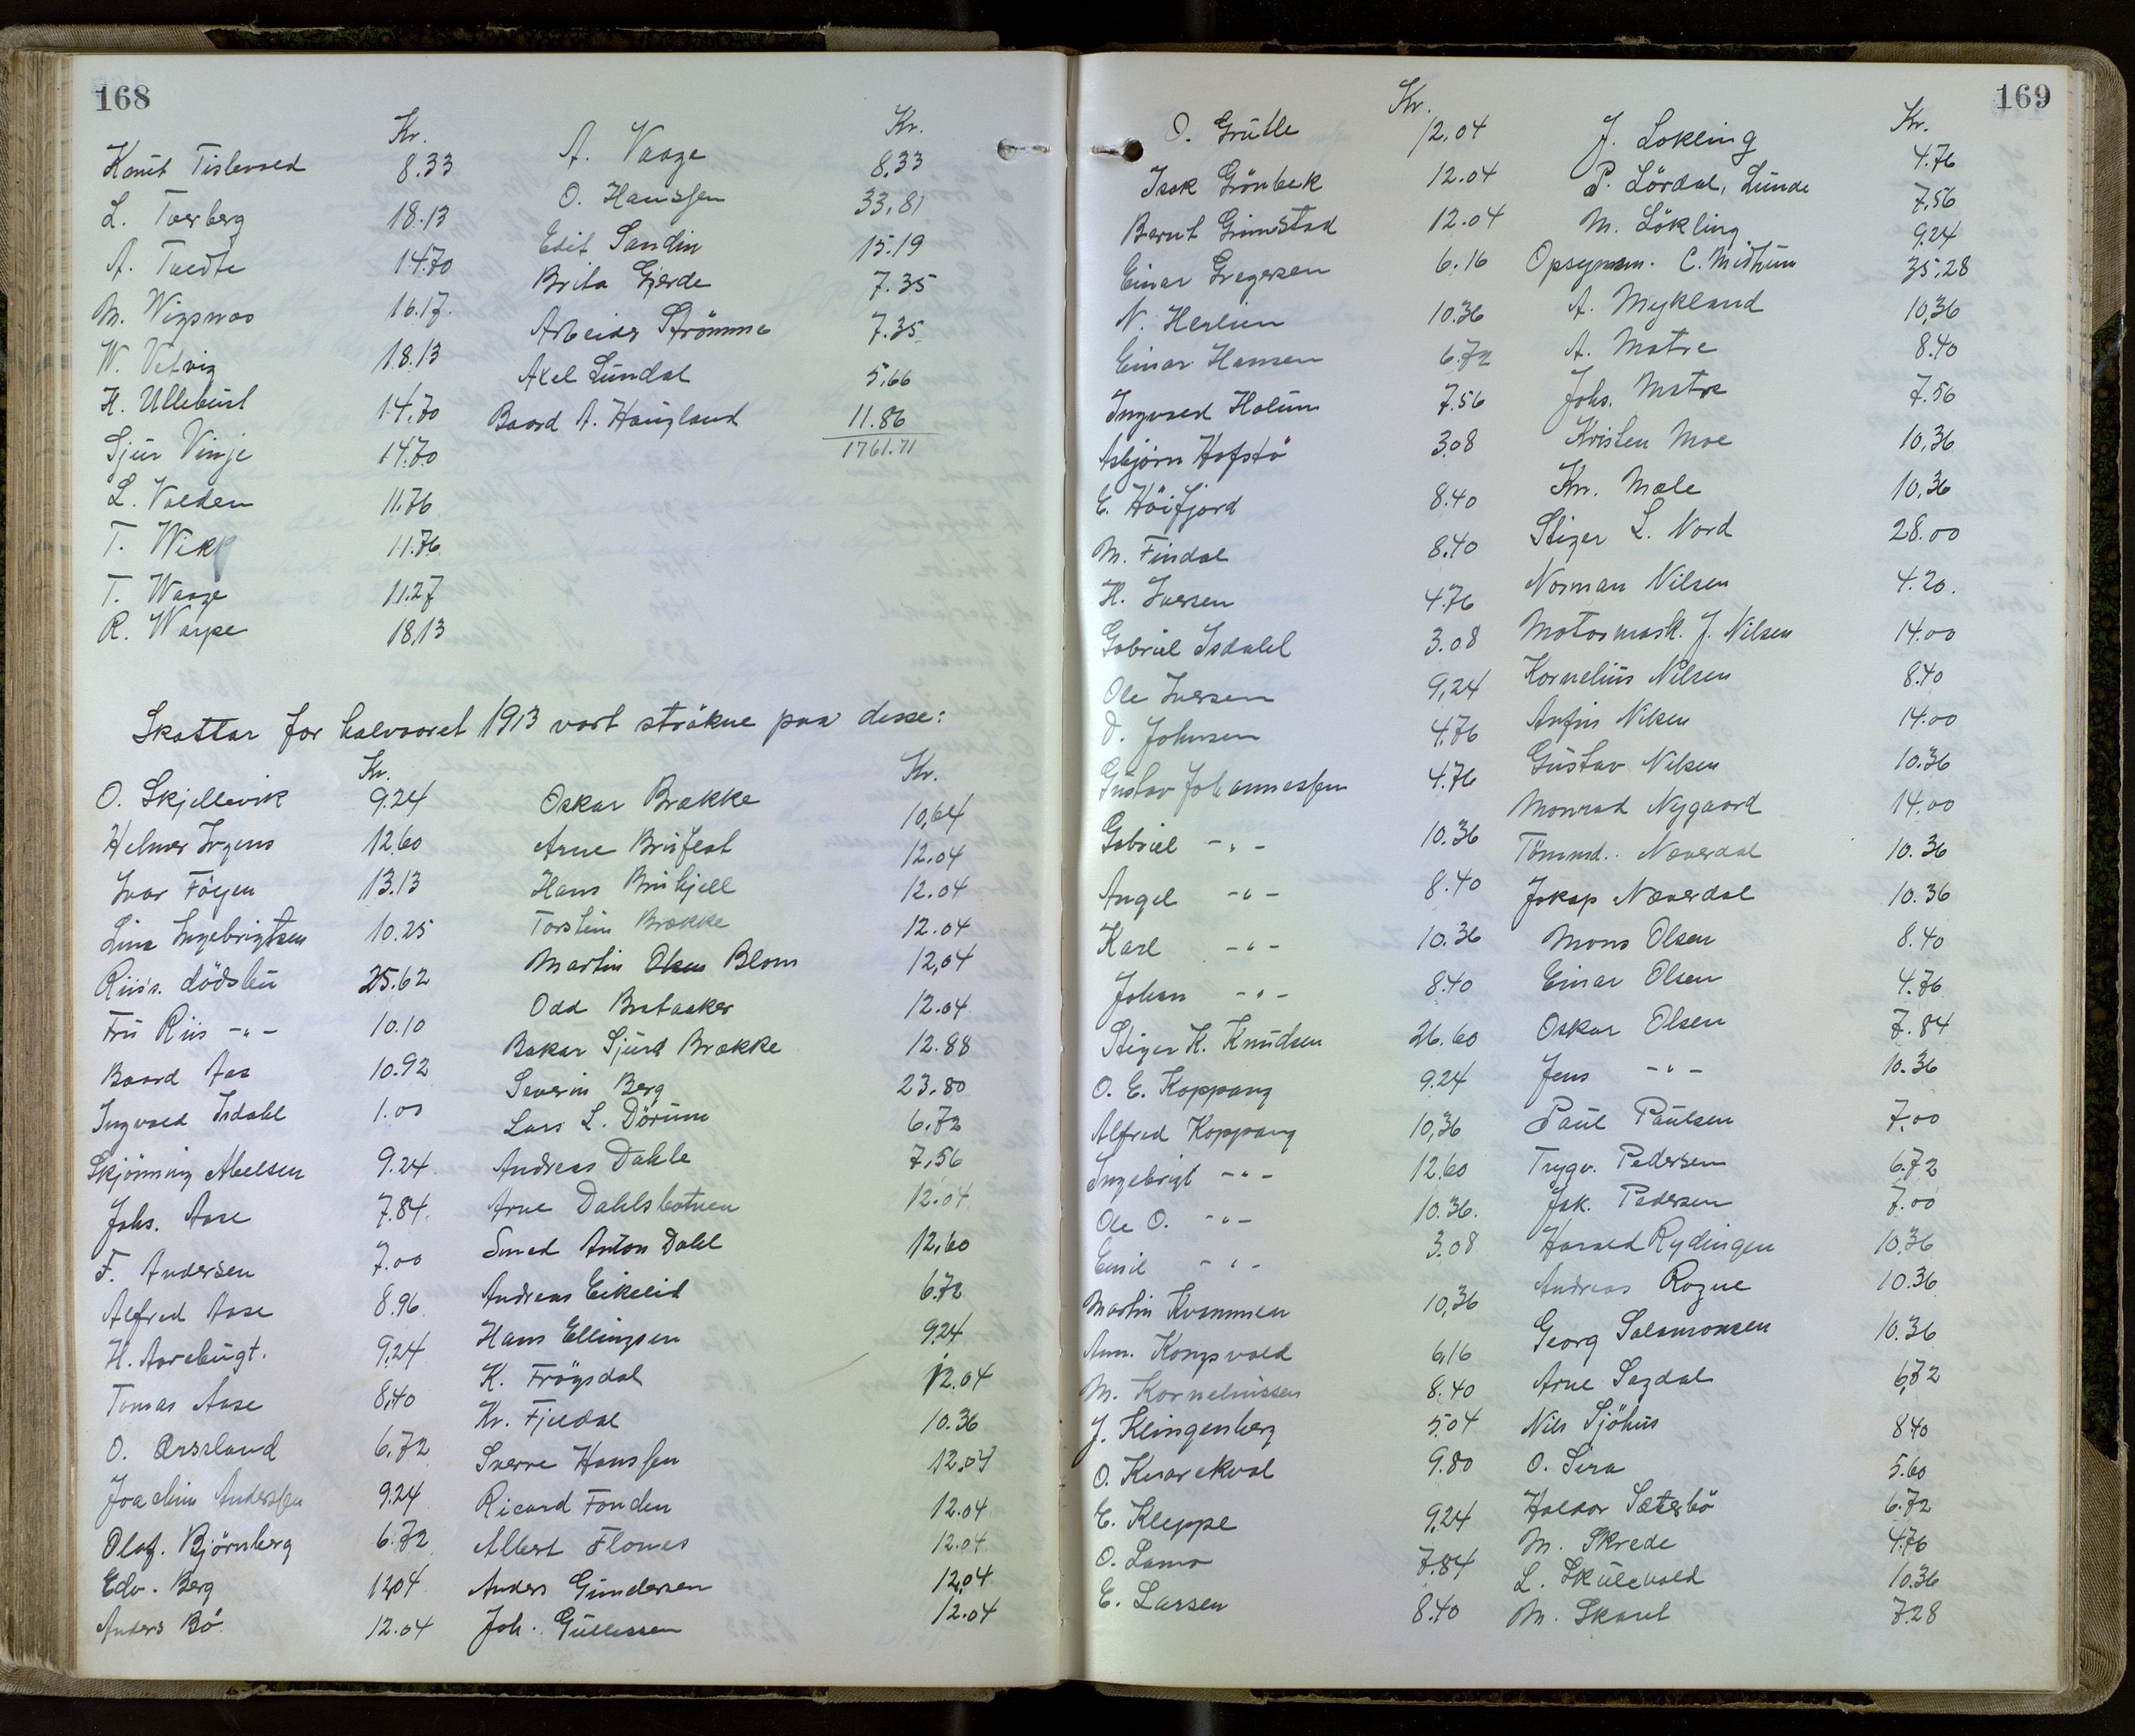 168
Kr. Kr.
Knut Tislevold 8.33 A. Vaage 8.33
L. Tverberg 18.13 O. Hanssen 33,81
A. Tvedte 14.70 Edit Sandin 15.19
M. Wigsnæs 16.17. Brita Gjerde 7.35
W. Vetvig 18.13 Arbeider Strömme 7.35
H. Ullebust 14.70 Axel Lundal 5,66
Sjur Vinje 14.70 Baard A. Haugland 11.86
L. Volden 11.76 1761.71
T. Wik 11.76
T. Waage 11.27
R. Warpe 18,13
Skattar for halvaaret 1913 vart strökne paa desse:
Kr. Kr.
O. Skjellevik 9.24 Oskar Brække 10,64
Helmer Irgens 12.60 Arne Bruflat 12.04
Ivar Föyen 13.13 Hans Brukjell 12.04
Lina Ingebrigtsen 10.25 Torstein Brække 12.04
Riis's. dödsbu 25.62 Martin Olsen Blom 12,04
Fru Riis -"- 10.10 Odd Brataker 12.04
Baard Aas 10.92 Bakar Sjurd Brække 12.88
Ingvald Isdahl 1.00 Severin Berg 23.80
Skjönning Abelsen 9.24 Lars L. Dörum 6.72
Johs. Aase 7.84. Andreas Dahle 7,56
F. Andersen 7.00 Arne Dahlsbotnen 12.04
Alfred Aase 8.96 Smed Anton Dahl 12,60
H. Aarebugt. 9,24 Andreas Eikeid 6.72
Tomas Aase 8,40 Hans Ellingsen 9.24
O. Aarsland 6,72 K. Frögsdal 12.04
Joachim Anderssen 9.24 Kr. Fjeldal 10.36
Olaf. Björnberg 6.72 Sverre Hanssen 12.04
Edv. Berg 12.04 Ricard Fonden 12.04
Anders Bö 12.04 Albert Flones 12.04
Anders Gundersen 12,04
Joh. Gullessen 12.04
169
Kr. Kr.
O. Grütle 12.04 J. Lokling 4.76
Isak Grönbek 12.04 P. Lördal, Lunde 7,56
Bernt Grimstad 12.04 M. Lökling 9.24
Einar Gregersen 6.16 Opsynsm. C. Midtun 35,28
N. Herlien 10.36 A. Mykland 10,36
Einar Hansen 6.72 A. Matre 8.40
Ingvald Holum 7.56 Johs. Matre 7.56
Asbjörn Hofstö 3.08 Kristen Moe 10,36
E. Höifjord 8.40 Kr. Mæle 10,36
M. Findal 8.40 Stiger L. Nord 28.00
H. Iversen 4.76 Norman Nilsen 4.20.
Gabriel Isdahl 3.08 Motormask. J. Nilsen 14.00
Ole Iversen 9,24 Kornelius Nilsen 8.40
D. Johnsen 4.76 Anfin Nilsen 14.00
Gustav Johannessen 4.76 Gustav Nilsen 10.36
Gabriel -"- 10.36 Monrad Nygaard 14.00
Angel -"- 8.40 Tömmd.. Næverdal 10.36
Karl -"- 10.36 Jakop Næverdal 10.36
Johan -"- 8.40 Mons Olsen 8.40
Stiger K. Knudsen 26.60 Einar Olsen 4.76
O. E. Koppang 9.24 Oskar Olsen 7.84
Alfred Koppang 10,36 Jens -"- 10.36
Ingebrigt -"- 12.60 Paul Paulsen 7.00
Ole O. -"- 10.36. Trygv. Pedersen 6.72
Emil -"- 3.08 Jak. Pedersen 7.00
Martin Kvammen 10,36 Harald Rydningen 10.36
Ann. Kongsvold 6,16 Andreas Rogne 10.36
M. Korneliussen 8.40 Georg Salamonsen 10.36
J. Klingenberg 5.04 Arne Sagdal 6,72
O. Kvarekval 9.80 Nils Sjöhus 8.40
E. Kleppe 9.24 O. Sira 5.60
O. Lamo 7.84 Haldor Sæterbö 6.72
E. Larsen 8.40 M. Skrede 4.76
L. Skulevold 10.36
M. Skaret 7.28